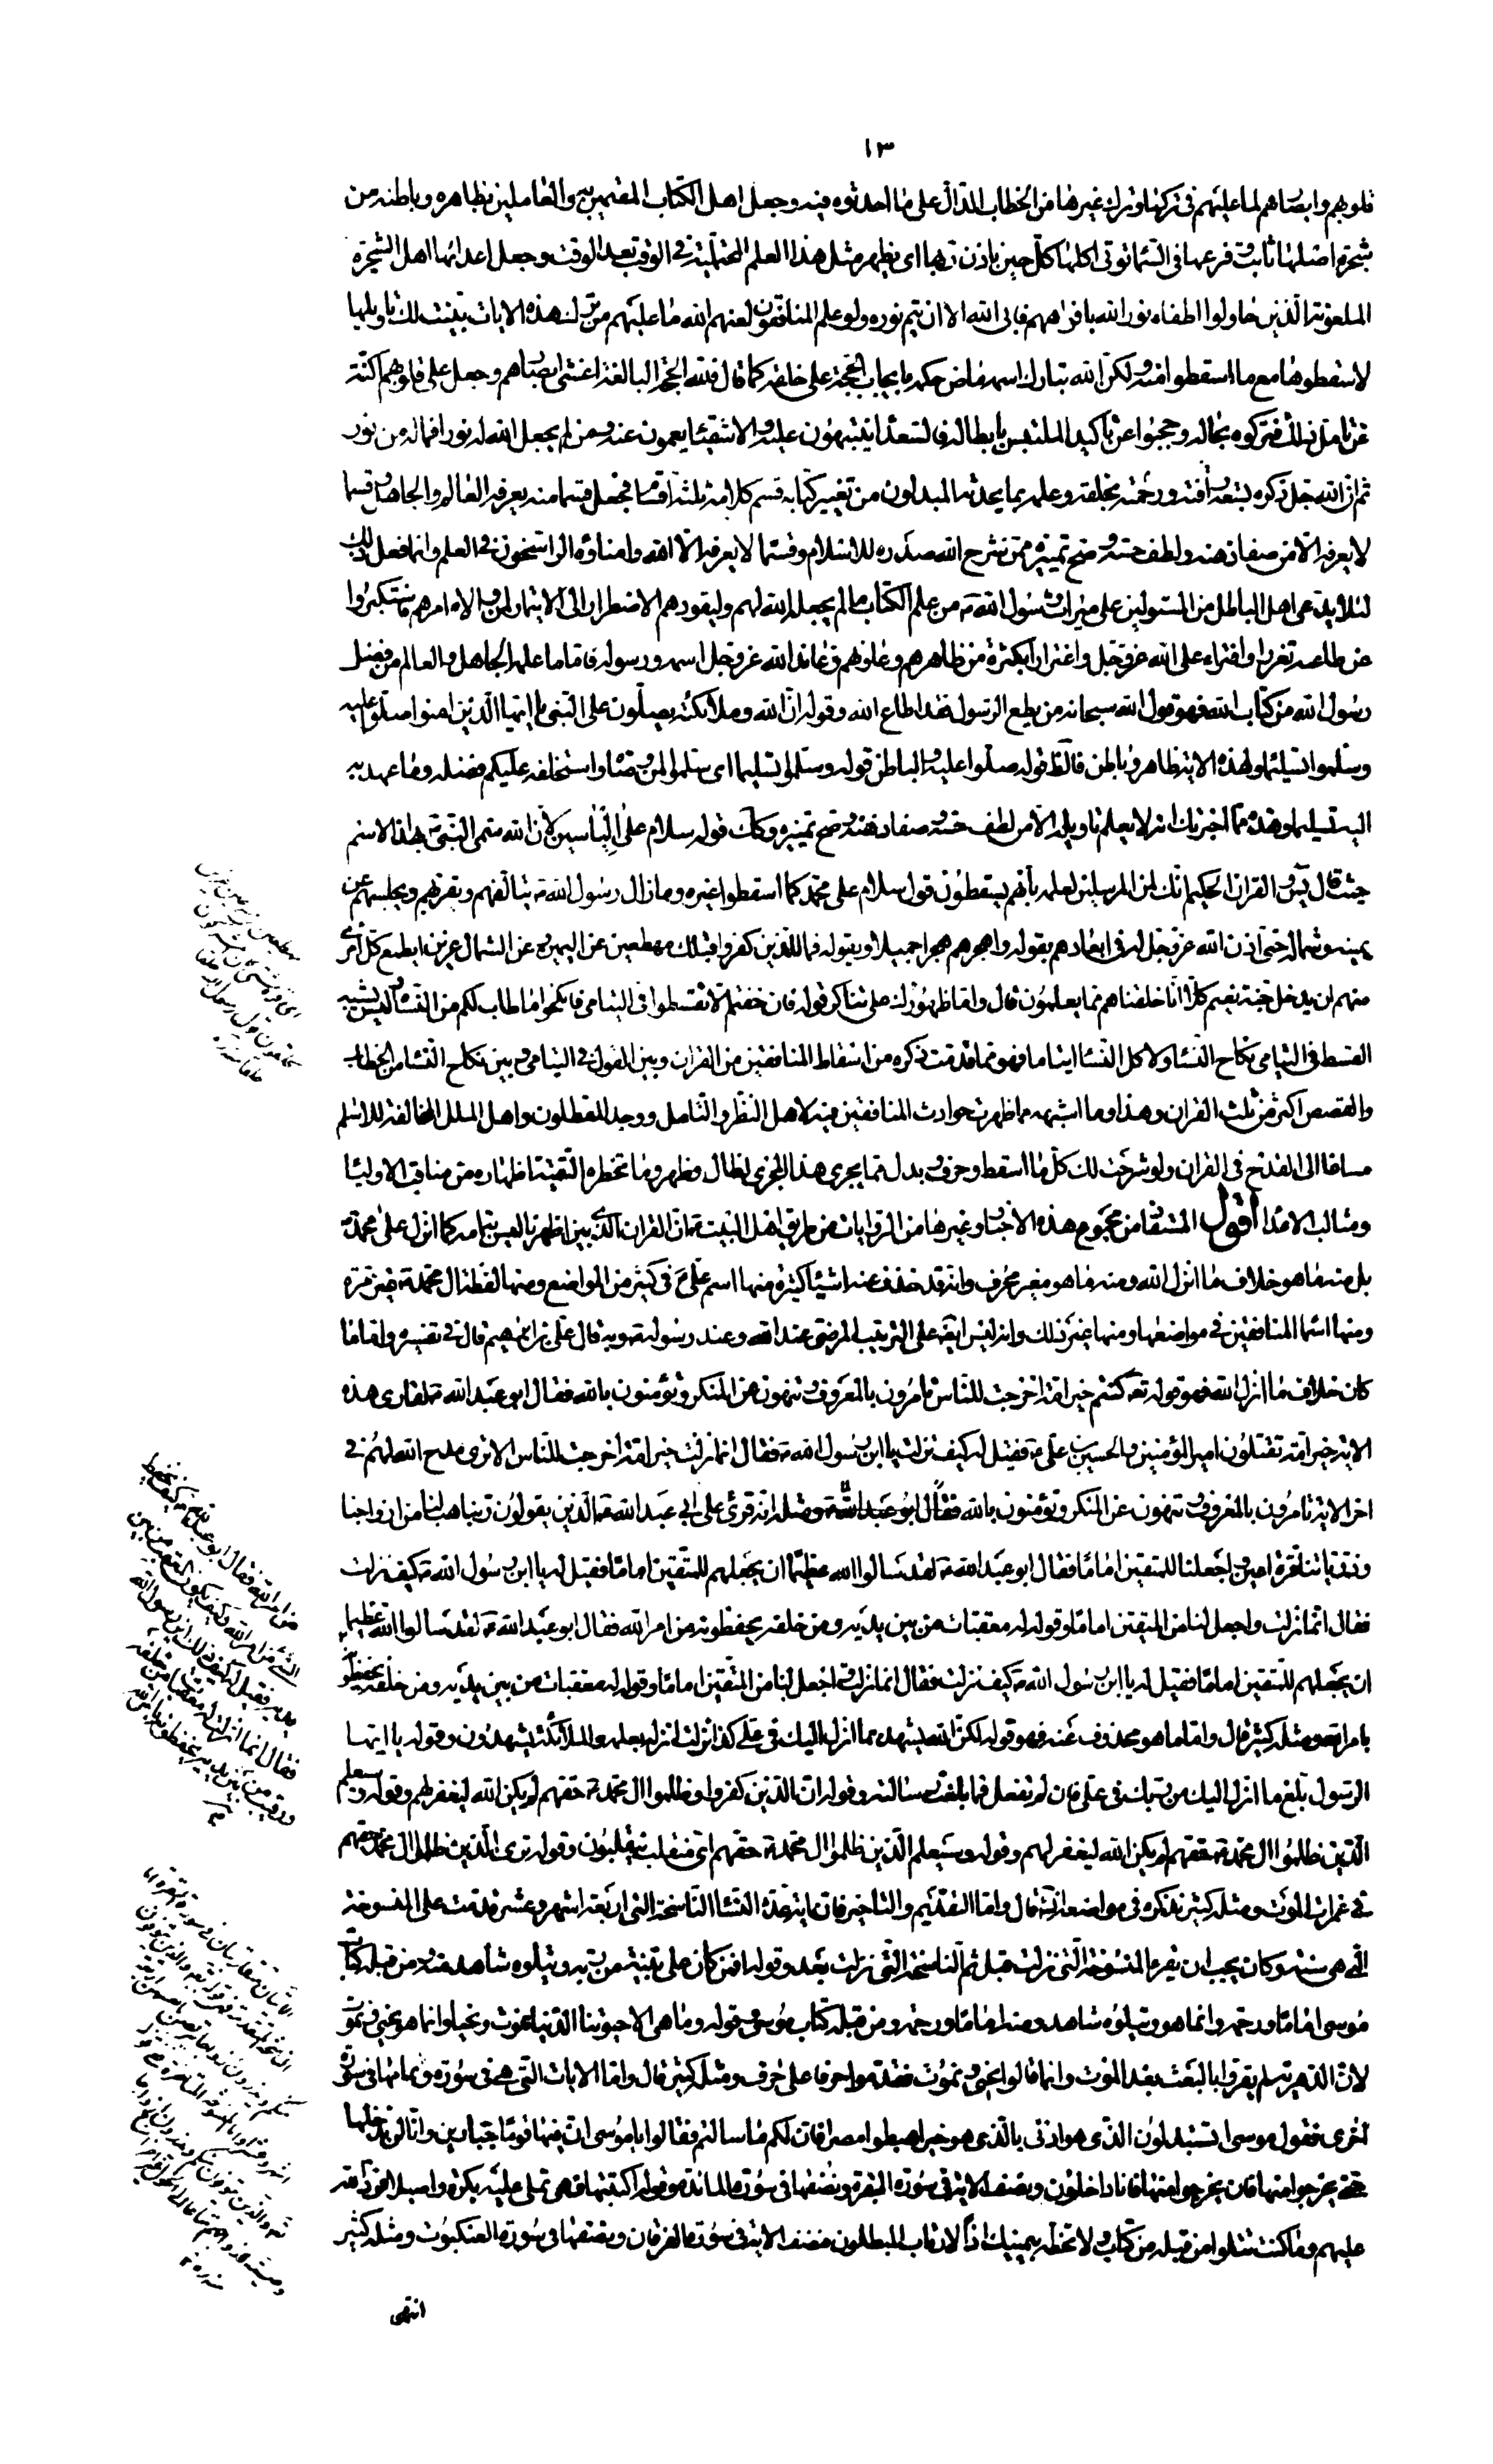 ١٣
قلوبهم وابصارهم لما عليهم في تركها وترك غيرها من الخطاب الدال على ما احدثوه فيه وجعل اهل الكتاب المقيمين به والعاملين بظاهره وباطنه من
شجرة اصلها ثابت وفرعها في السماء تؤتى اكلها كل حين باذن ربها اى يظهر مثل هذا العلم لمحتمليه في الوقت بعد الوقت وجعل اعدائها اهل الشجرة
الملعونة الذين حاولوا اطفاء نور الله بافواههم فابى الله الا ان يتم نوره ولو علم المنافقون لعنهم الله ما عليهم من ترك هذه الايات بينت لك تاويلها
لاسقطوها مع ما اسقطوا منه ولكن الله تبارك اسمه ماض حكمه بايجاب الحجة على خلقه كما قال فلله الحجة البالغة اغشى ابصارهم وجعل على قلوبهم اكنة
عن تامل ذلك فتركوه بحاله وحجبوا عن تاكيد الملتبس بابطاله فالسعداء ينتبهون عليه والاشقياء يعمون عنه ومن لم يجعل الله له نورا فما له من نور
ثم ان الله جل ذكره بسعة رافته ورحمته بخلقه وعلمه بما يحدثه المبدلون من تغيير كتابه قسم كلامه ثلثة اقسام فجعل قسما منه يعرفه العالم والجاهل وقسما
لا يعرفه الا من صفا ذهنه ولطف حسه وصح تميزه ممن شرح الله صدره للاسلام وقسما لا يعرفه الا الله وامناؤه الراسخون في العلم وانما فعل ذلك
لئلا يدعى اهل الباطل من المستولين على ميراث رسول الله ص من علم الكتاب ما لم يجعله الله لهم وليقودهم الاضطرار الى الايتمار لمن ولاه امرهم فاستكبروا
عن طاعته تعززا وافتراء على الله عز وجل واغترارا بكثرة من ظاهرهم وعاونهم وعاند الله عز وجل اسمه ورسوله فاما ما علمه الجاهل والعالم من فضل
رسول الله من كتاب الله فهو قول الله سبحانه من يطع الرسول فقد اطاع الله وقوله ان الله وملائكته يصلون على النبي يا ايها الذين امنوا صلوا عليه
وسلموا تسليما ولهذه الاية ظاهر وباطن فالظ قوله صلوا عليه والباطن قوله وسلموا تسليما اى سلموا لمن وصاه واستخلفه عليكم فضله وما عهد به
اليه تسليما وهذا مما اخبرتك انه لا يعلم تاويله الا من لطف حسه وصفا ذهنه وصح تميزه وكك قوله سلام على ال ياسين لان الله سمى النبي ص بهذا الاسم
حيث قال يس والقران الحكيم انك لمن المرسلين لعلمه بانهم يسقطون قول سلام على محمد كما اسقطوا غيره وما زال رسول الله ص يتالفهم ويقربهم ويجلسهم عن
يمينه وشماله حتى اذن الله عز وجل له في ابعادهم بقوله واهجرهم هجرا جميلا وبقوله فما للذين كفروا قبلك مهطعين عن اليمين وعن الشمال عزين ايطمع كل امرئ
منهم ان يدخل جنة نعيم كلا انا خلقناهم مما يعلمون قال واما ظهورك على تناكر قوله فان خفتم الا تقسطوا في اليتامى فانكحوا ما طاب لكم من النساء وليس يشبه
القسط في اليتامى نكاح النساء ولا كل النساء ايتاما فهو مما قدمت ذكره من اسقاط المنافقين من القران وبين القول في اليتامى وبين نكاح النساء من الخطاب
والقصص اكثر من ثلث القران وهذا وما اشبهه مما ظهرت حوادث المنافقين فيه لاهل النظر والتامل ووجد المعطلون واهل الملل المخالفة للاسلام
مساغا الى القدح في القران ولو شرحت لك كل ما اسقط وحرف وبدل مما يجرى هذا المجرى لطال وظهر وما تحظره التقية اظهاره من مناقب الاولياء
ومثالب الاعداء اقول المستفاد من مجموع هذه الاخبار وغيرها من الروايات من طريق اهل البيت ع ان القران الذي بين اظهرنا ليس بتمامه كما انزل على محمد ص
بل منه ما هو خلاف ما انزل الله ومنه ما هو مغير محرف وانه قد حذف عنه اشياء كثيرة منها اسم على ع في كثير من المواضع ومنها لفظة ال محمد ص غير مرة
ومنها اسماء المنافقين في مواضعها ومنها غير ذلك وانه ليس ايضا على الترتيب المرضى عند الله وعند رسوله ص وبه قال على بن ابرهيم قال في تفسيره واما ما
كان خلاف ما انزل الله فهو قوله تع كنتم خير امة اخرجت للناس تامرون بالمعروف وتنهون عن المنكر وتؤمنون بالله فقال ابو عبد الله ع لقارى هذه
الاية خير امة تقتلون امير المؤمنين والحسين بن على ع فقيل له كيف نزلت يا ابن رسول الله ص فقال انما نزلت خير ائمة اخرجت للناس الا ترى مدح الله لهم في
اخر الاية تامرون بالمعروف وتنهون عن المنكر وتؤمنون بالله فقال ابو عبد الله ع ومثله انه قرئ على ابى عبد الله ع الذين يقولون ربنا هب لنا من ازواجنا
وذرياتنا قرة اعين واجعلنا للمتقين اماما فقال ابو عبد الله ع لقد سالوا الله عظيما ان يجعلهم للمتقين اماما فقيل له يا ابن رسول الله ص كيف نزلت
فقال انما نزلت واجعل لنا من المتقين اماما وقوله له معقبات من بين يديه ومن خلفه يحفظونه من امر الله فقال ابو عبد الله ع لقد سالوا الله عظيما
ان يجعلهم للمتقين اماما فقيل له يا ابن رسول الله ص كيف نزلت فقال انما نزلت واجعل لنا من المتقين اماما وقوله له معقبات من بين يديه ومن خلفه يحفظونه
بامر الله ومثله كثير قال واما ما هو محذوف عنه فهو قوله لكن الله يشهد بما انزل اليك في على كذا انزلت انزله بعلمه والملائكة يشهدون وقوله يا ايها
الرسول بلغ ما انزل اليك من ربك في على فان لم تفعل فما بلغت رسالته وقوله ان الذين كفروا وظلموا ال محمد ص حقهم لم يكن الله ليغفر لهم وقوله وسيعلم
الذين ظلموا ال محمد ص حقهم لم يكن الله ليغفر لهم وقوله وسيعلم الذين ظلموا ال محمد ص حقهم اى منقلب ينقلبون وقوله ترى الذين ظلموا ال محمد حقهم
في غمرات الموت ومثله كثير نذكره في مواضعه انش قال واما التقديم والتاخير فان اية عدة النساء الناسخة التى اربعة اشهر وعشر قدمت على المنسوخة
التى هى سنة وكان يجب ان يقرء المنسوخة التى نزلت قبل ثم الناسخة التى نزلت بعد وقوله افمن كان على بينة من ربه ويتلوه شاهد منه ومن قبله كتاب
موسى اماما ورحمة وانما هو ويتلوه شاهد منه اماما ورحمة ومن قبله كتاب موسى وقوله وما هى الا حيوتنا الدنيا نموت ونحيا وانما هو نحيى ونموت
لان الدهرية لم يقروا بالبعث بعد الموت وانما قالوا نحيى ونموت فقدموا حرفا على حرف ومثله كثير قال واما الايات التى هى في سورة وتمامها في سورة
اخرى فقول موسى اتستبدلون الذى هو ادنى بالذى هو خير اهبطوا مصرا فان لكم ما سالتم فقالوا يا موسى ان فيها قوما جبارين وانا لن ندخلها
حتى يخرجوا منها فان يخرجوا منها فانا داخلون ونصف الاية في سورة البقرة ونصفها في سورة المائدة وقوله اكتتبها فهى تملى عليه بكرة واصيلا فرد الله
عليهم وما كنت تتلوا من قبله من كتاب ولا تخطه بيمينك اذا لارتاب المبطلون فنصف الاية في سورة الفرقان ونصفها في سورة العنكبوت ومثله كثير
انتهى
من امر الله فقال ابو عبد الله ع كيف يحفظ
الشئ من امر الله وكيف يكون المعقب من بين
يديه فقيل له كيف ذلك يا ابن رسول الله
فقال انما انزلت له معقبات من خلفه
ورقيب من بين يديه يحفظونه بامر الله